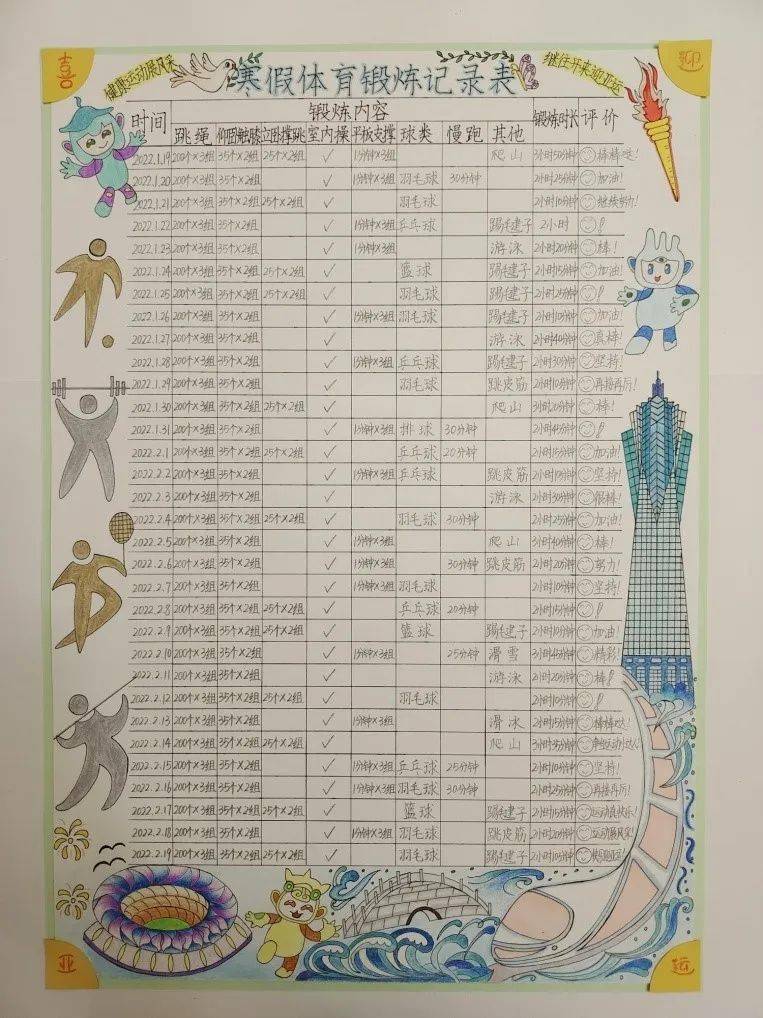 喜 迎
健康运动展风采
寒假体育锻炼记录表
继往开来迎亚运
时间 锻炼内容 锻炼时长 评价
跳绳 仰卧触膝 立卧撑跳 室内操 平板支撑 球类 慢跑 其他
2022.1.19 200个×3组 35个×2组 25个×2组 ✓ 1分钟×3组 爬山 3小时50分钟 棒棒哒!
2022.1.20 200个×3组 35个×2组 ✓ 1分钟×3组 羽毛球 30分钟 2小时25分钟 加油!
2022.1.21 200个×3组 35个×2组 25个×2组 ✓ 羽毛球 2小时10分钟 继续努力!
2022.1.22 200个×3组 35个×2组 ✓ 1分钟×3组 乒乓球 踢毽子 2小时
2022.1.23 200个×3组 35个×2组 ✓ 1分钟×3组 游泳 2小时20分钟 棒!
2022.1.24 200个×3组 35个×2组 25个×2组 ✓ 篮球 踢毽子 2小时15分钟 加油!
2022.1.25 200个×3组 35个×2组 25个×2组 ✓ 羽毛球 踢毽子 2小时25分钟
2022.1.26 200个×3组 35个×2组 ✓ 1分钟×3组 羽毛球 踢毽子 2小时10分钟 加油!
2022.1.27 200个×3组 35个×2组 ✓ 游泳 2小时40分钟 真棒!
2022.1.28 200个×3组 35个×2组 ✓ 1分钟×3组 乒乓球 踢毽子 2小时30分钟 坚持!
2022.1.29 200个×3组 35个×2组 ✓ 羽毛球 跳皮筋 2小时10分钟 再接再厉!
2022.1.30 200个×3组 35个×2组 25个×2组 ✓ 爬山 3小时20分钟 棒!
2022.1.31 200个×3组 35个×2组 ✓ 1分钟×3组 排球 30分钟 2小时45分钟
2022.2.1 200个×3组 35个×2组 25个×2组 ✓ 乒乓球 20分钟 2小时15分钟 加油!
2022.2.2 200个×3组 35个×2组 ✓ 1分钟×3组 乒乓球 跳皮筋 2小时10分钟 坚持!
2022.2.3 200个×3组 35个×2组 ✓ 游泳 2小时30分钟 很棒!
2022.2.4 200个×3组 35个×2组 25个×2组 ✓ 羽毛球 30分钟 2小时25分钟 加油!
2022.2.5 200个×3组 35个×2组 ✓ 1分钟×3组 爬山 3小时40分钟 棒!
2022.2.6 200个×3组 35个×2组 ✓ 1分钟×3组 30分钟 跳皮筋 2小时20分钟 努力!
2022.2.7 200个×3组 35个×2组 ✓ 1分钟×3组 羽毛球 2小时10分钟 坚持!
2022.2.8 200个×3组 35个×2组 25个×2组 ✓ 乒乓球 20分钟 2小时15分钟
2022.2.9 200个×3组 35个×2组 25个×2组 ✓ 篮球 踢毽子 2小时10分钟 加油!
2022.2.10 200个×3组 35个×2组 ✓ 1分钟×3组 25分钟 滑雪 3小时45分钟 精彩!
2022.2.11 200个×3组 35个×2组 ✓ 游泳 2小时20分钟 棒
2022.2.12 200个×3组 35个×2组 25个×2组 ✓ 羽毛球 2小时10分钟
2022.2.13 200个×3组 35个×2组 ✓ 1分钟×3组 滑冰 2小时15分钟 棒棒哒!
2022.2.14 200个×3组 35个×2组 25个×2组 ✓ 爬山 3小时35分钟
2022.2.15 200个×3组 35个×2组 ✓ 1分钟×3组 乒乓球 25分钟 2小时10分钟 坚持!
2022.2.16 200个×3组 35个×2组 ✓ 1分钟×3组 羽毛球 30分钟 2小时25分钟 再接再厉!
2022.2.17 200个×3组 35个×2组 25个×2组 ✓ 篮球 踢毽子 2小时15分钟
2022.2.18 200个×3组 35个×2组 ✓ 1分钟×3组 羽毛球 跳皮筋 2小时20分钟 运动展风采!
2022.2.19 200个×3组 35个×2组 25个×2组 ✓ 羽毛球 踢毽子 2小时10分钟
亚 运